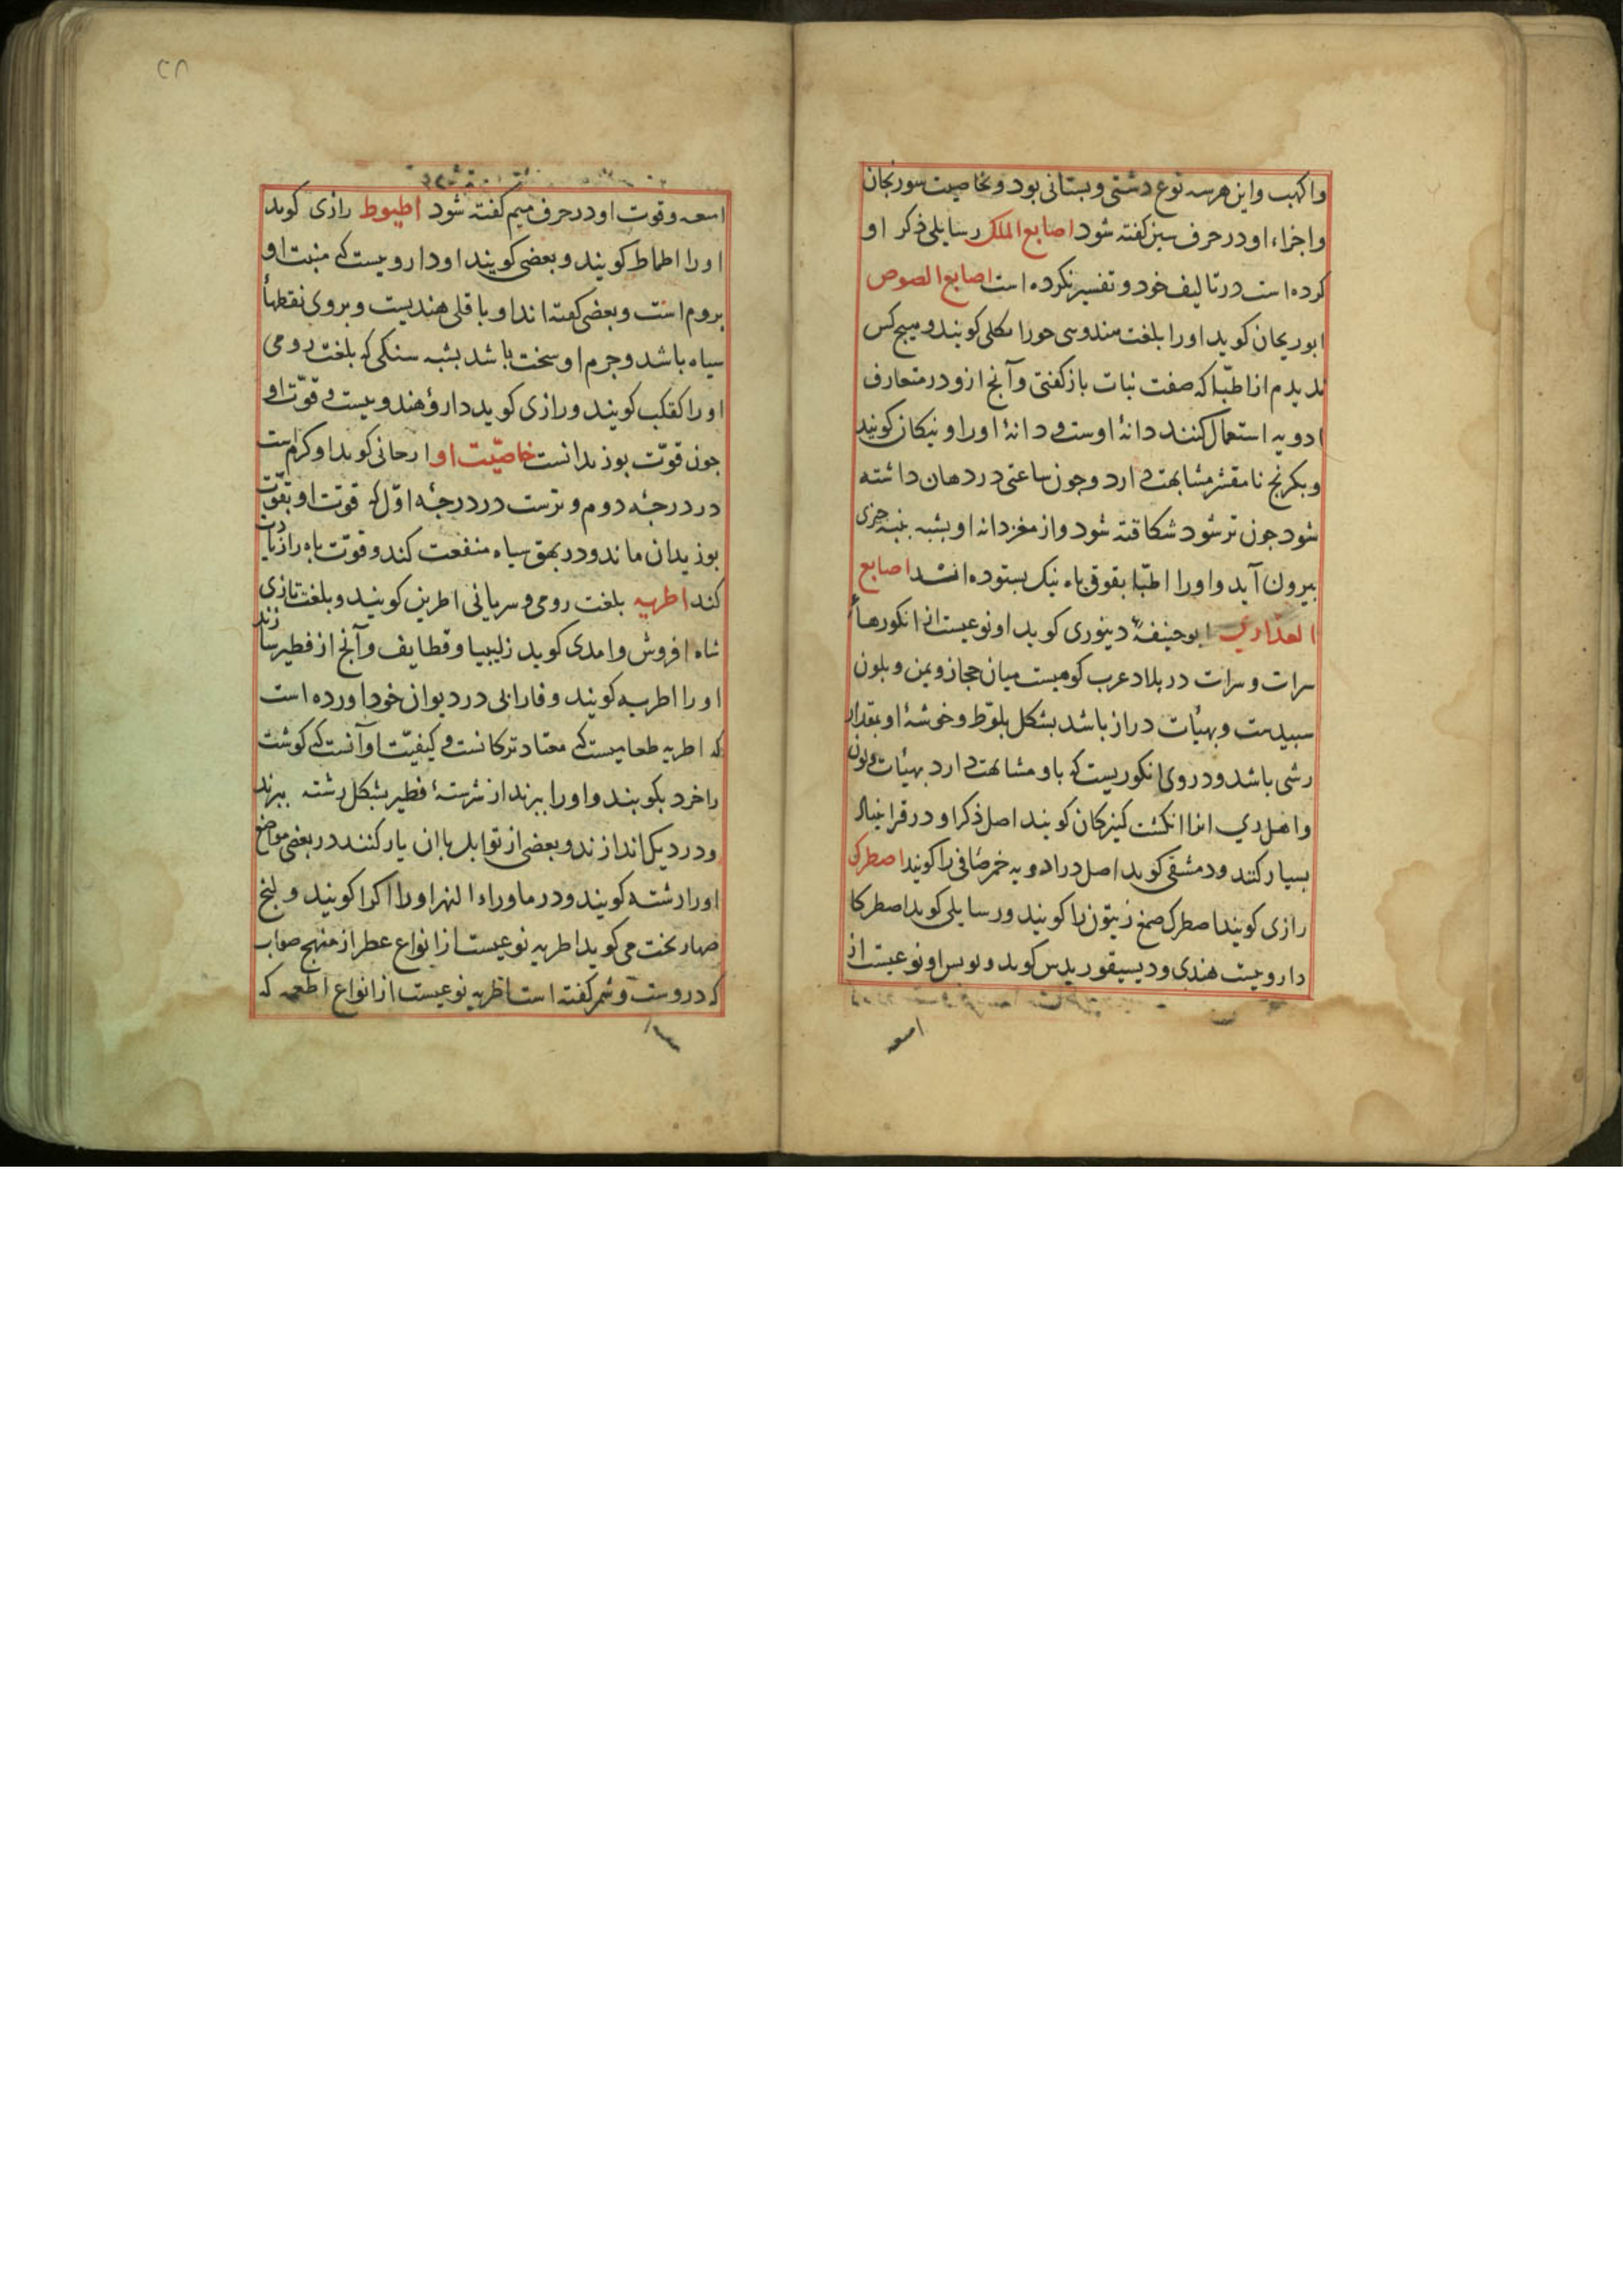 واکهب واین هرسه نوع دشتی و بستانی بود و بخاصیت سورنجان
واجزاء او در حرف سین کفته شود اصابع الملک رسایلی ذکر او
کرده است در تالیف خود و تفسیر نکرده است اصابع اللصوص
ابوریحان کوید او را بلغت کویند و هیچ کس
ندیدم از اطبّا که صفت نبات باز کفتی وآنچ ازو در متعارف
ادویه استعمال کنند دانهٔ اوست و دانهٔ او را کویند
و بکرنج نا مقشر مشابهت دارد و چون ساعتی در دهان داشته
شود جون تر شود شکافته شود و از مغز دانه او بشبه پنبه جزی
بیرون آید و او را اطبّا بقوق باه نیک بستوده اند اصابع
العذاری ابوحنیفهٔ دینوری کوید او نوعیست از انکورها
سرات و سرات در بلاد عرب کوهیست میان حجاز و یمن و بلون
سبیدست و بهیٔات دراز باشد بشکل بلوّط و خوشهٔ او بمقدار
رشی باشد و در وی انکوریست که باو مشابهت دارد بهیٔات و لون
واهل ری انرا انکشت کنیزکان کویند اصل ذکر او در قرابنبال
بسیار کنند و دمشقی کوید اصل در ادویه خمر صافی را کویند اصطرک
رازی کویند اصطرک صمغ زیتون را کویند و رسایلی کوید اصطرکا
دارویست هندی و دیسیقوریدس کوید و بولس او نوعیست از
امیعه
۲۸
امیعه و قوت او در حرف میم کفته شود اطیوط رازی کوید
او را اطماط کویند و بعضی کویند او دارویست کی منبت او
بروم است و بعضی کفته اند او باقلی هندیست و بروی نقطهأ
سیاه باشد و جرم او سخت باشد بشبه سنکی که بلغت رومی
او را کویند و رازی کوید دارؤ هندویست و قوّت او
جون قوّت بوزیدانست خاصیّت او ارجانی کوید او کرم است
در درجهٔ دوم و ترست در درجهٔ اوّل که قوّت او بقوّت
بوزیدان ماند و در بهق سیاه منفعت کند و قوّت باه را زیادت
کند اطریه بلغت رومی و سریانی اطرین کویند و بلغت تازی
شاه افروش و امدی کوید زلیبیا و قطایف و آنچ از فطیر سازند
او را اطریه کویند و فارابی در دیوان خود اورده است
که اطریه طعامیست کی معتاد ترکانست و کیفیّت او آنست کی کوشت
را خرد بکوبند و او را ببزند از سرشتهٔ فطیر بشکل رشته ببرند
و در دیک اندازند و بعضی از توابل باان یار کنند در بعضی مواضع
او را رشته کویند و در ماوراء النهر او را اکرا کویند و لبخ
صهاربخت می کوید اطریه نوعیست از انواع عطر از منهج صواب
که دروست و شمر کفته است اطریه نوعیست از انواع اطعمه که